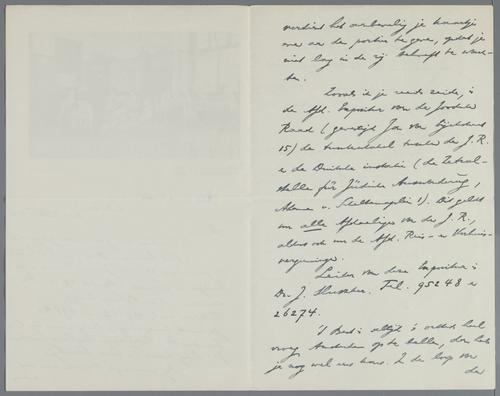 verdient het aanbeveling je kaartje
mee aan de portier te geven, opdat je
niet lang in de rij behoeft te wach-
ten.
Zooals ik je reeds zeide, is
de Afd. Expositur van de Joodsche
Raad (gevestigd Jan van Eijckstraat
15) de tusschenschakel tusschen de J.R.
en de Duitsche instantie (de Zentral-
stelle für Jüdische Auswanderung,
Adama v. Scheltemaplein 1). Dit geldt
voor alle Afdeelingen van de J.R.,
alsook voor de Afd. Reis- en Verhuis-
vergunningen.
Leider van deze Expositur is
Dr. J. Tel. 95248 en
26274.
't Best is altijd 's ochtends heel
vroeg op te bellen, dan heb
je nog wel eens kans. In de loop van
den